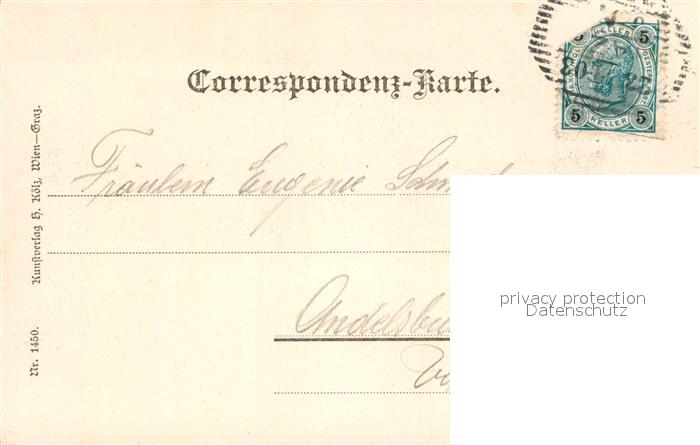 Correspondenz-Karte.
5 HELLER 5
5 HELLER 5
Fräulein Eugenie
Kunstverlag H. Kölz, Wien—Graz.
Nr. 1450.
privacy protection
Datenschutz